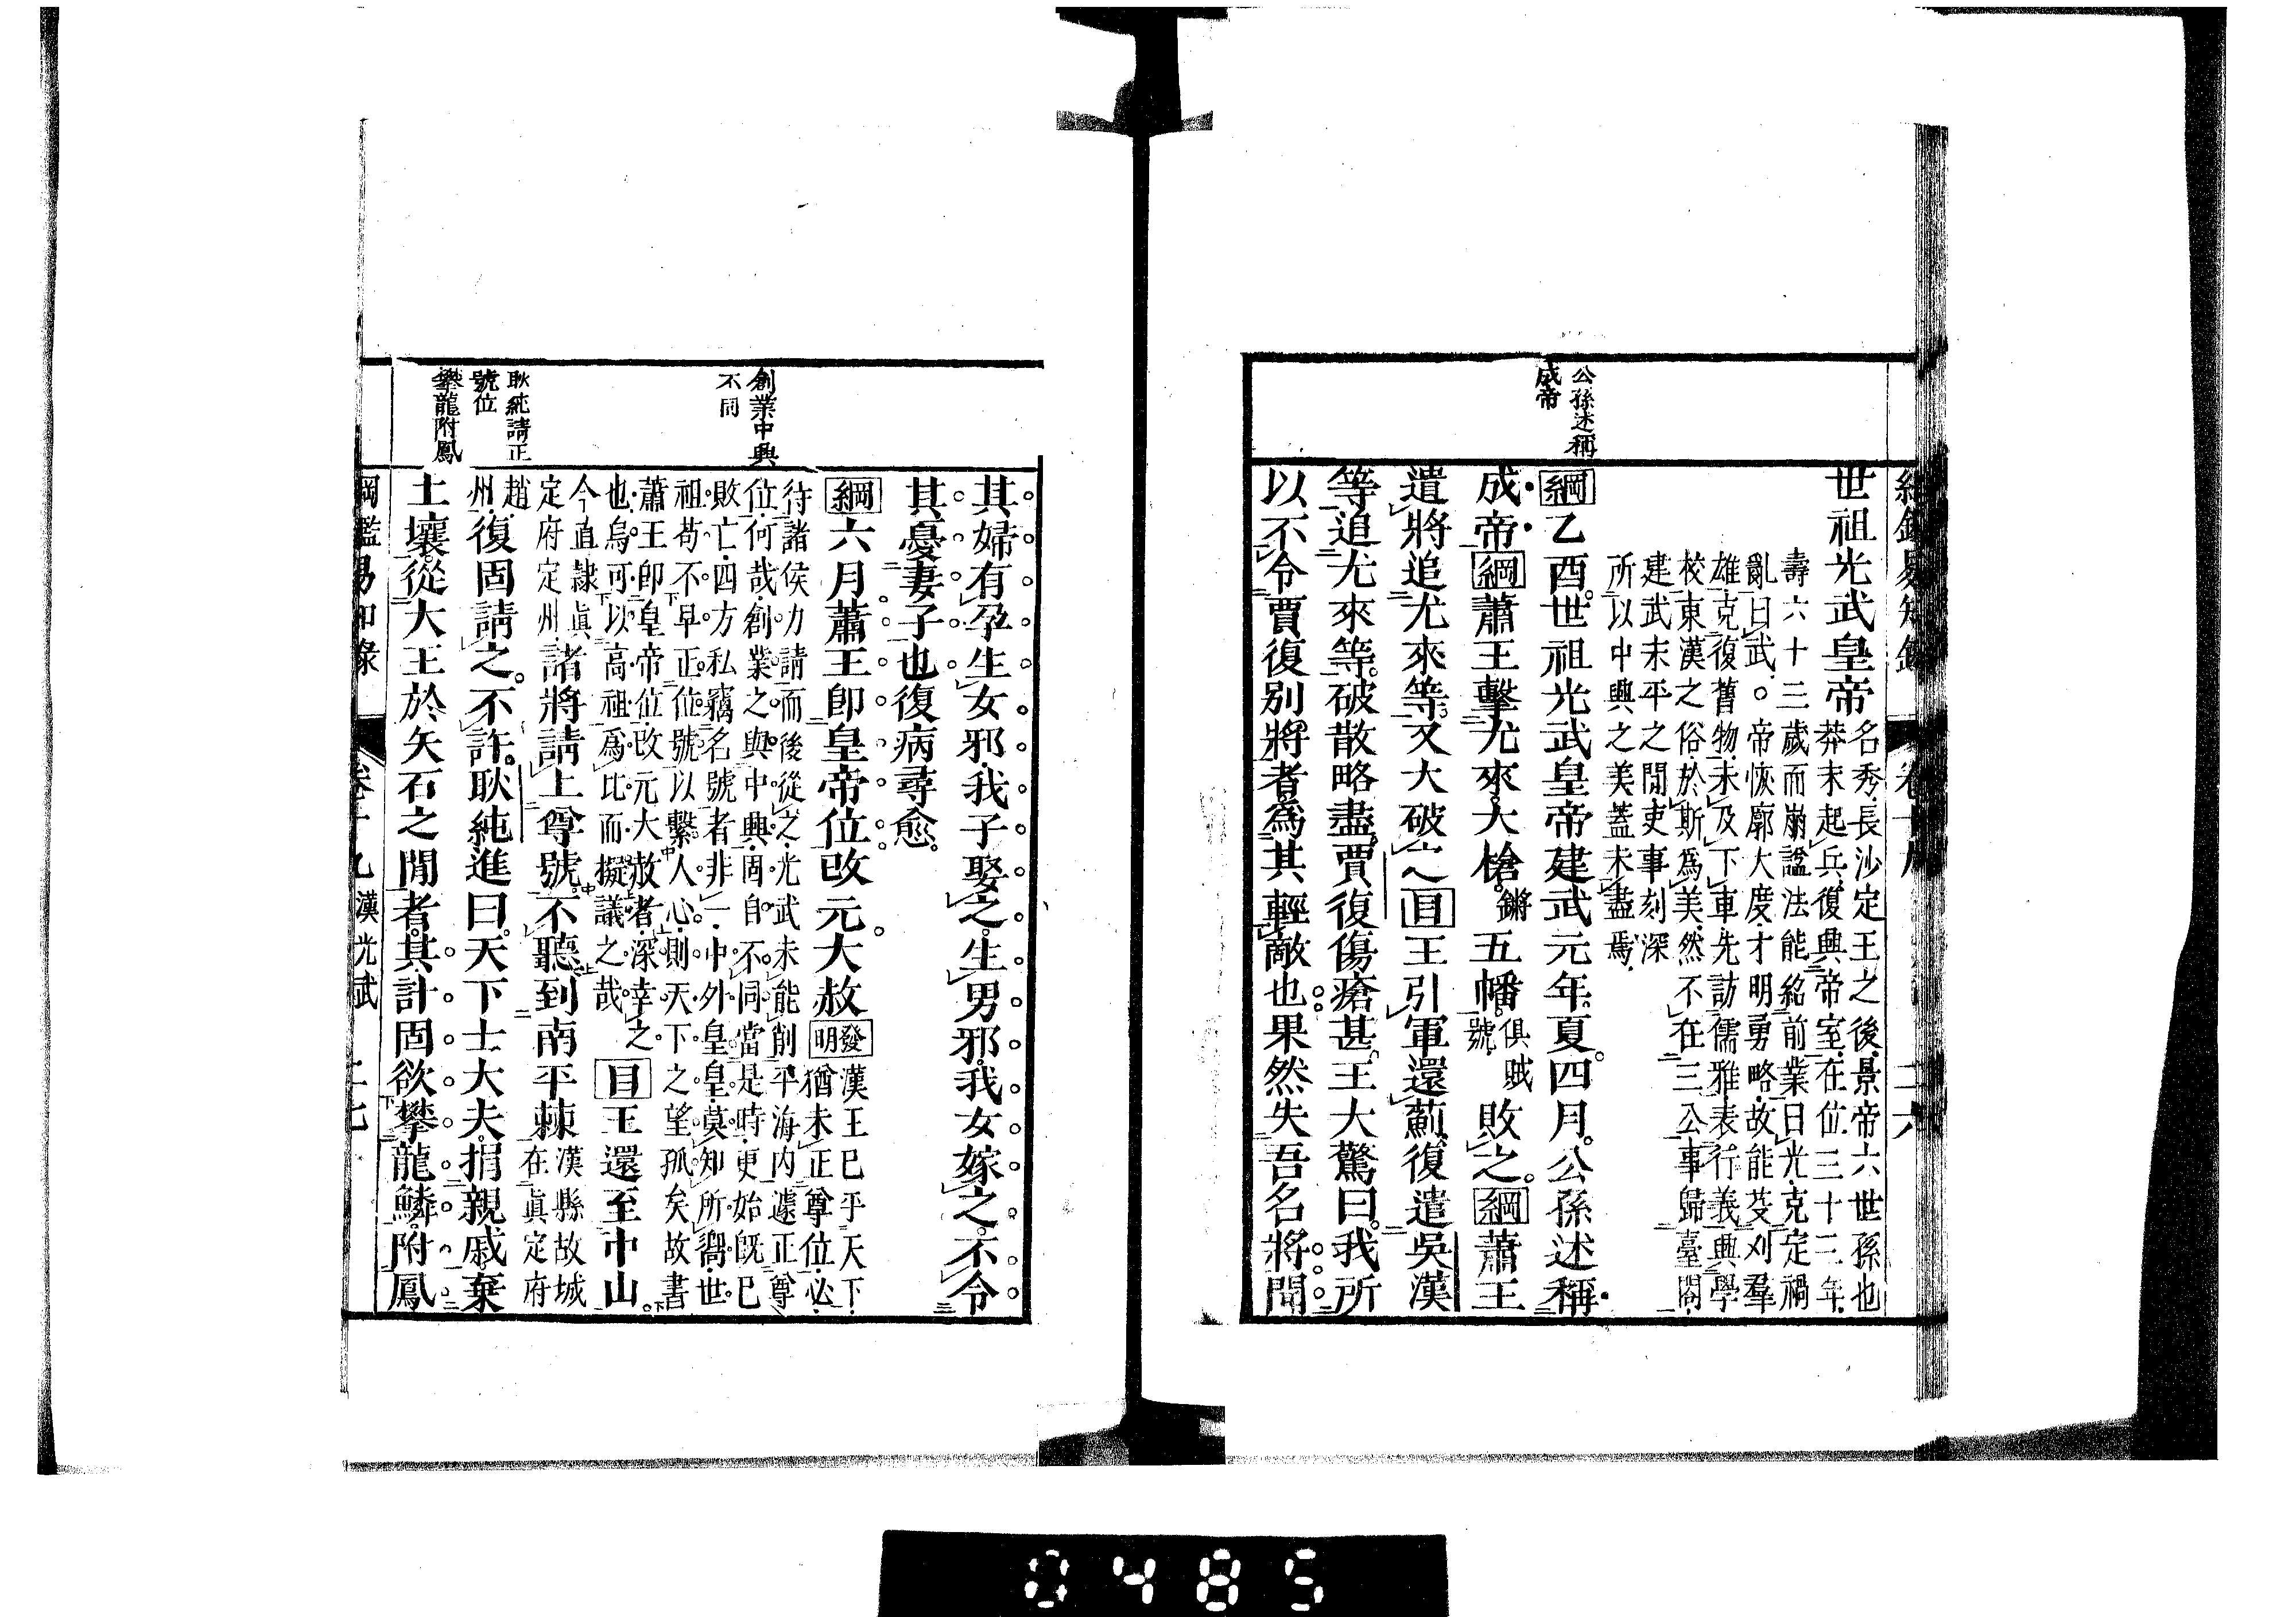 公孫述稱
成帝
世祖光武皇帝名秀長沙定王之後景帝六世孫也
莽末起兵復興帝室在位三十三年
壽六十三歲而崩諡法能紹前業曰光克定禍
亂曰武○帝恢廓大度才明勇略故能芟刈羣
雄克復舊物未及下車先訪儒雅表行義興學
校東漢之俗於斯爲美然不在三公事歸臺閣
建武末平之閒吏事刻深
所以中興之美蓋未盡焉
綱乙酉世祖光武皇帝建武元年夏四月公孫述稱
成帝綱蕭王擊尤來大槍鏘五幡俱賊號敗之綱蕭王
遣將追尤來等又大破之目王引軍還薊復遣吳漢
等追尤來等破散略盡賈復傷瘡甚王大驚曰我所
以不令賈復別將者爲其輕敵也果然失吾名將聞
創業中興
不同
耿純請正
號位
攀龍附鳳
其婦有孕生女邪我子娶之生男邪我女嫁之不令
其憂妻子也復病尋愈
綱六月蕭王卽皇帝位改元大赦發明漢王已乎天下
猶未正尊位必
待諸侯力請而後從之光武未能削平海內遽正尊
位何哉創業之與中興固自不同當是時更始旣已
敗亡四方私竊名號者非一中外皇皇莫知所嚮世
祖苟不早正位號以繫人心則天下之望孤矣故書
蕭王卽皇帝位改元大赦者深幸之
也烏可以高祖爲比而擬議之哉目王還至中山
今直隸眞
定府定州諸將請上尊號不聽到南平棘漢縣故城
在眞定府
趙
州復固請之不許耿純進曰天下士大夫捐親戚棄
土壤從大王於矢石之閒者其計固欲攀龍鱗附鳳
綱鑑易知錄 卷十九 漢光武 二七